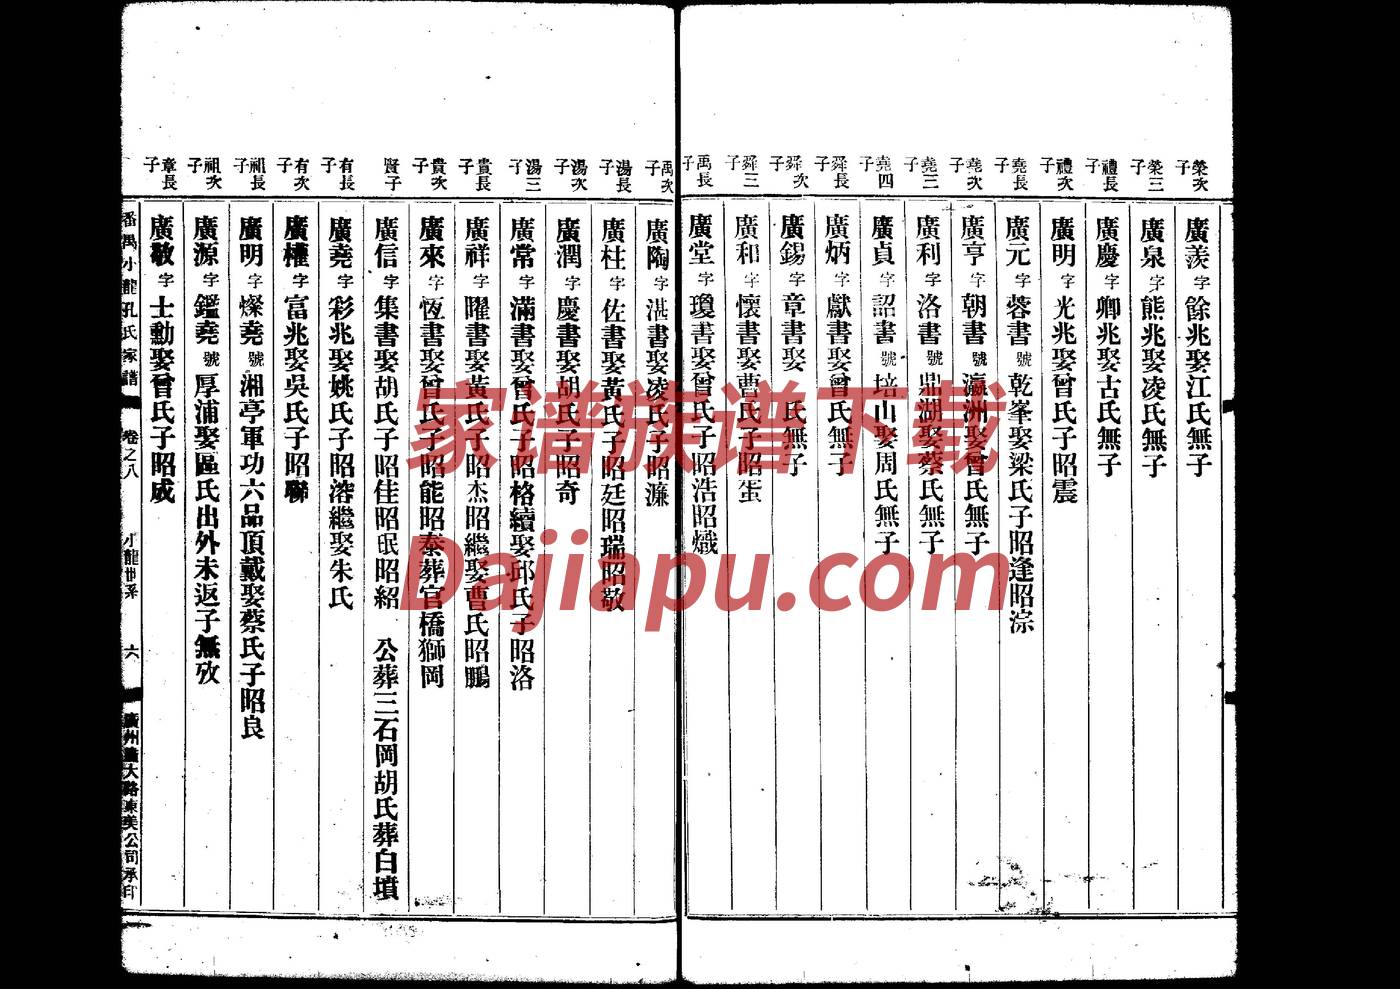 榮次子 廣羨字餘兆娶江氏無子
榮三子 廣泉字熊兆娶凌氏無子
禮長子 廣慶字卿兆娶古氏無子
禮次子 廣明字光兆娶曾氏子昭震
堯長子 廣元字蓉書號乾峯娶梁氏子昭逢昭淙
堯次子 廣亨字朝書號瀛洲娶曾氏無子
堯三子 廣利字洛書號鼎湖娶蔡氏無子
堯四子 廣貞字詔書號培山娶周氏無子
舜長子 廣炳字獻書娶曾氏無子
舜次子 廣錫字章書娶 氏無子
舜三子 廣和字懷書娶曹氏子昭蛋
禹長子 廣堂字瓊書娶曾氏子昭浩昭熾
禹次子 廣陶字湛書娶凌氏子昭濂
湯長子 廣柱字佐書娶黃氏子昭廷昭瑞昭敬
湯次子 廣潤字慶書娶胡氏子昭奇
湯三子 廣常字滿書娶曾氏子昭格續娶邱氏子昭洛
貴長子 廣祥字曜書娶黃氏子昭杰昭繼娶曹氏昭鵬
貴次子 廣來字恆書娶曾氏子昭能昭泰葬官橋獅岡
賢子 廣信字集書娶胡氏子昭佳昭珉昭紹 公葬三石岡胡氏葬白墳
有長子 廣堯字彩兆娶姚氏子昭溶繼娶朱氏
有次子 廣權字富兆娶吳氏子昭聯
祖長子 廣明字燦堯號湘亭軍功六品頂戴娶蔡氏子昭良
祖次子 廣源字鑑堯號厚浦娶區氏出外未返子無攷
章長子 廣敬字士勳娶曾氏子昭成
番禺小龍孔氏家譜 卷之八 小龍世系 六 廣州 大路東美公司承印
家谱族谱下载
Dajiapu.com